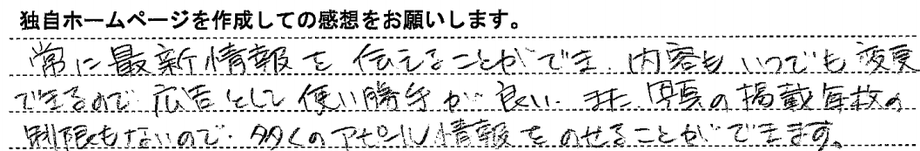 独自ホームページを作成しての感想をお願いします。
常に最新情報を伝えることができ、内容もいつでも変更
できるので広告として使い勝手が良い。また写真の掲載等枚の
制限もないので、多くのアピール情報をのせることができます。